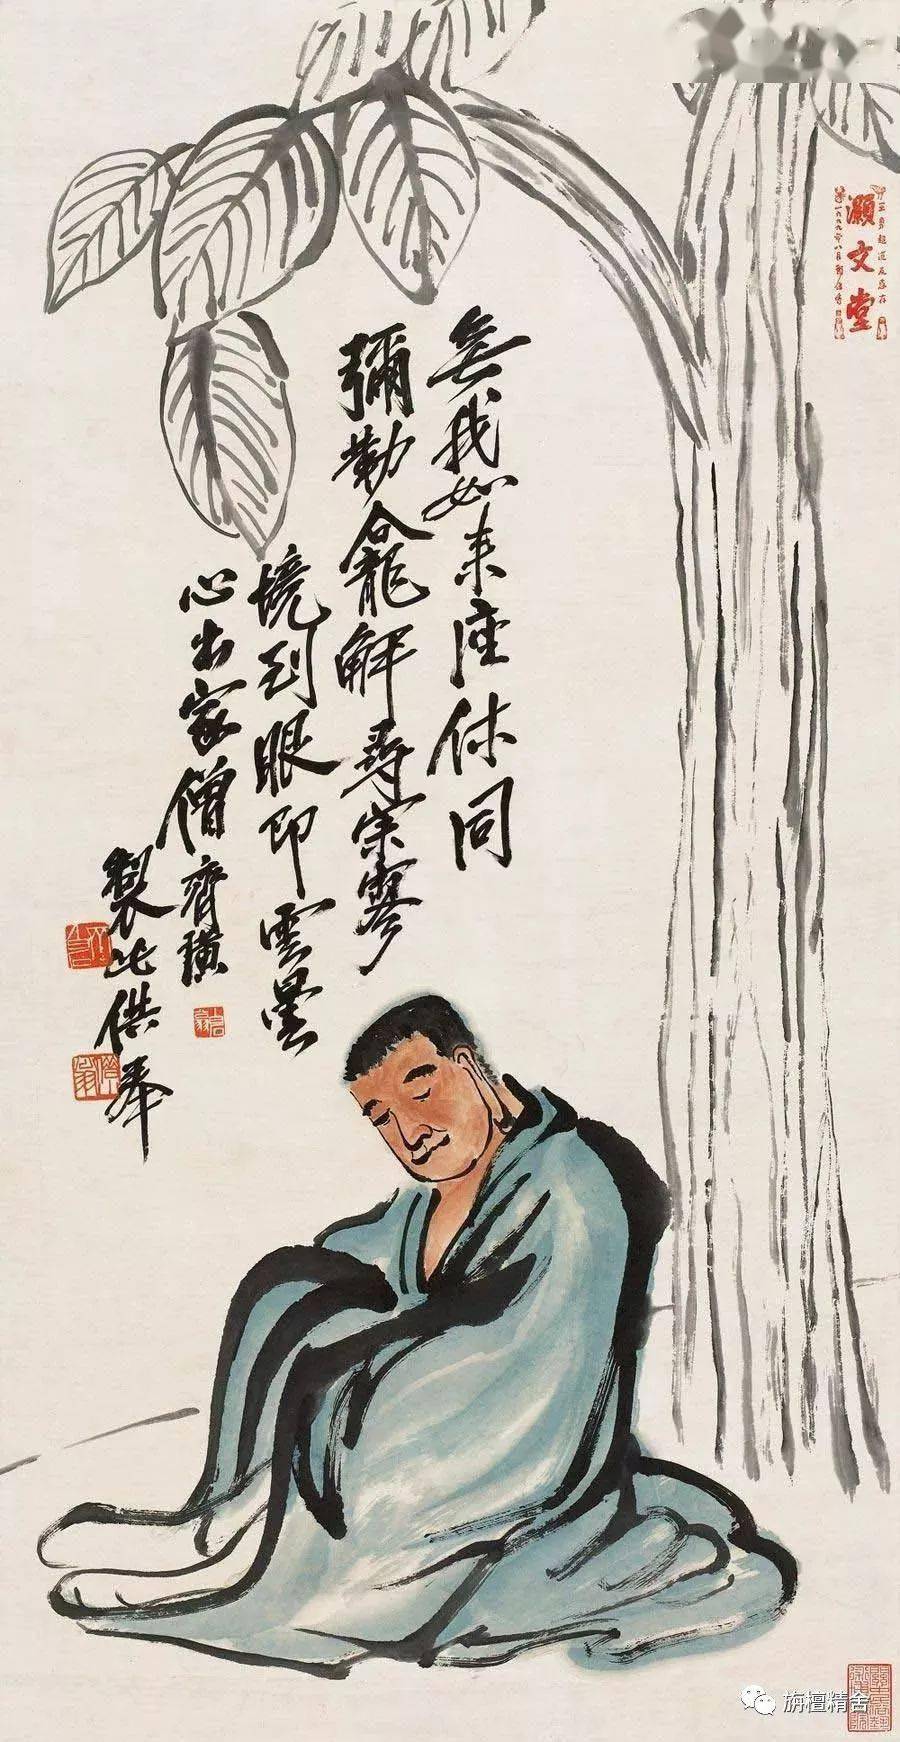 灝文堂
無我如來座休同
彌勒龕解尋寂寥
境到眼即雲曇
心出家僧齊璜
製此供奉
旃檀精舍